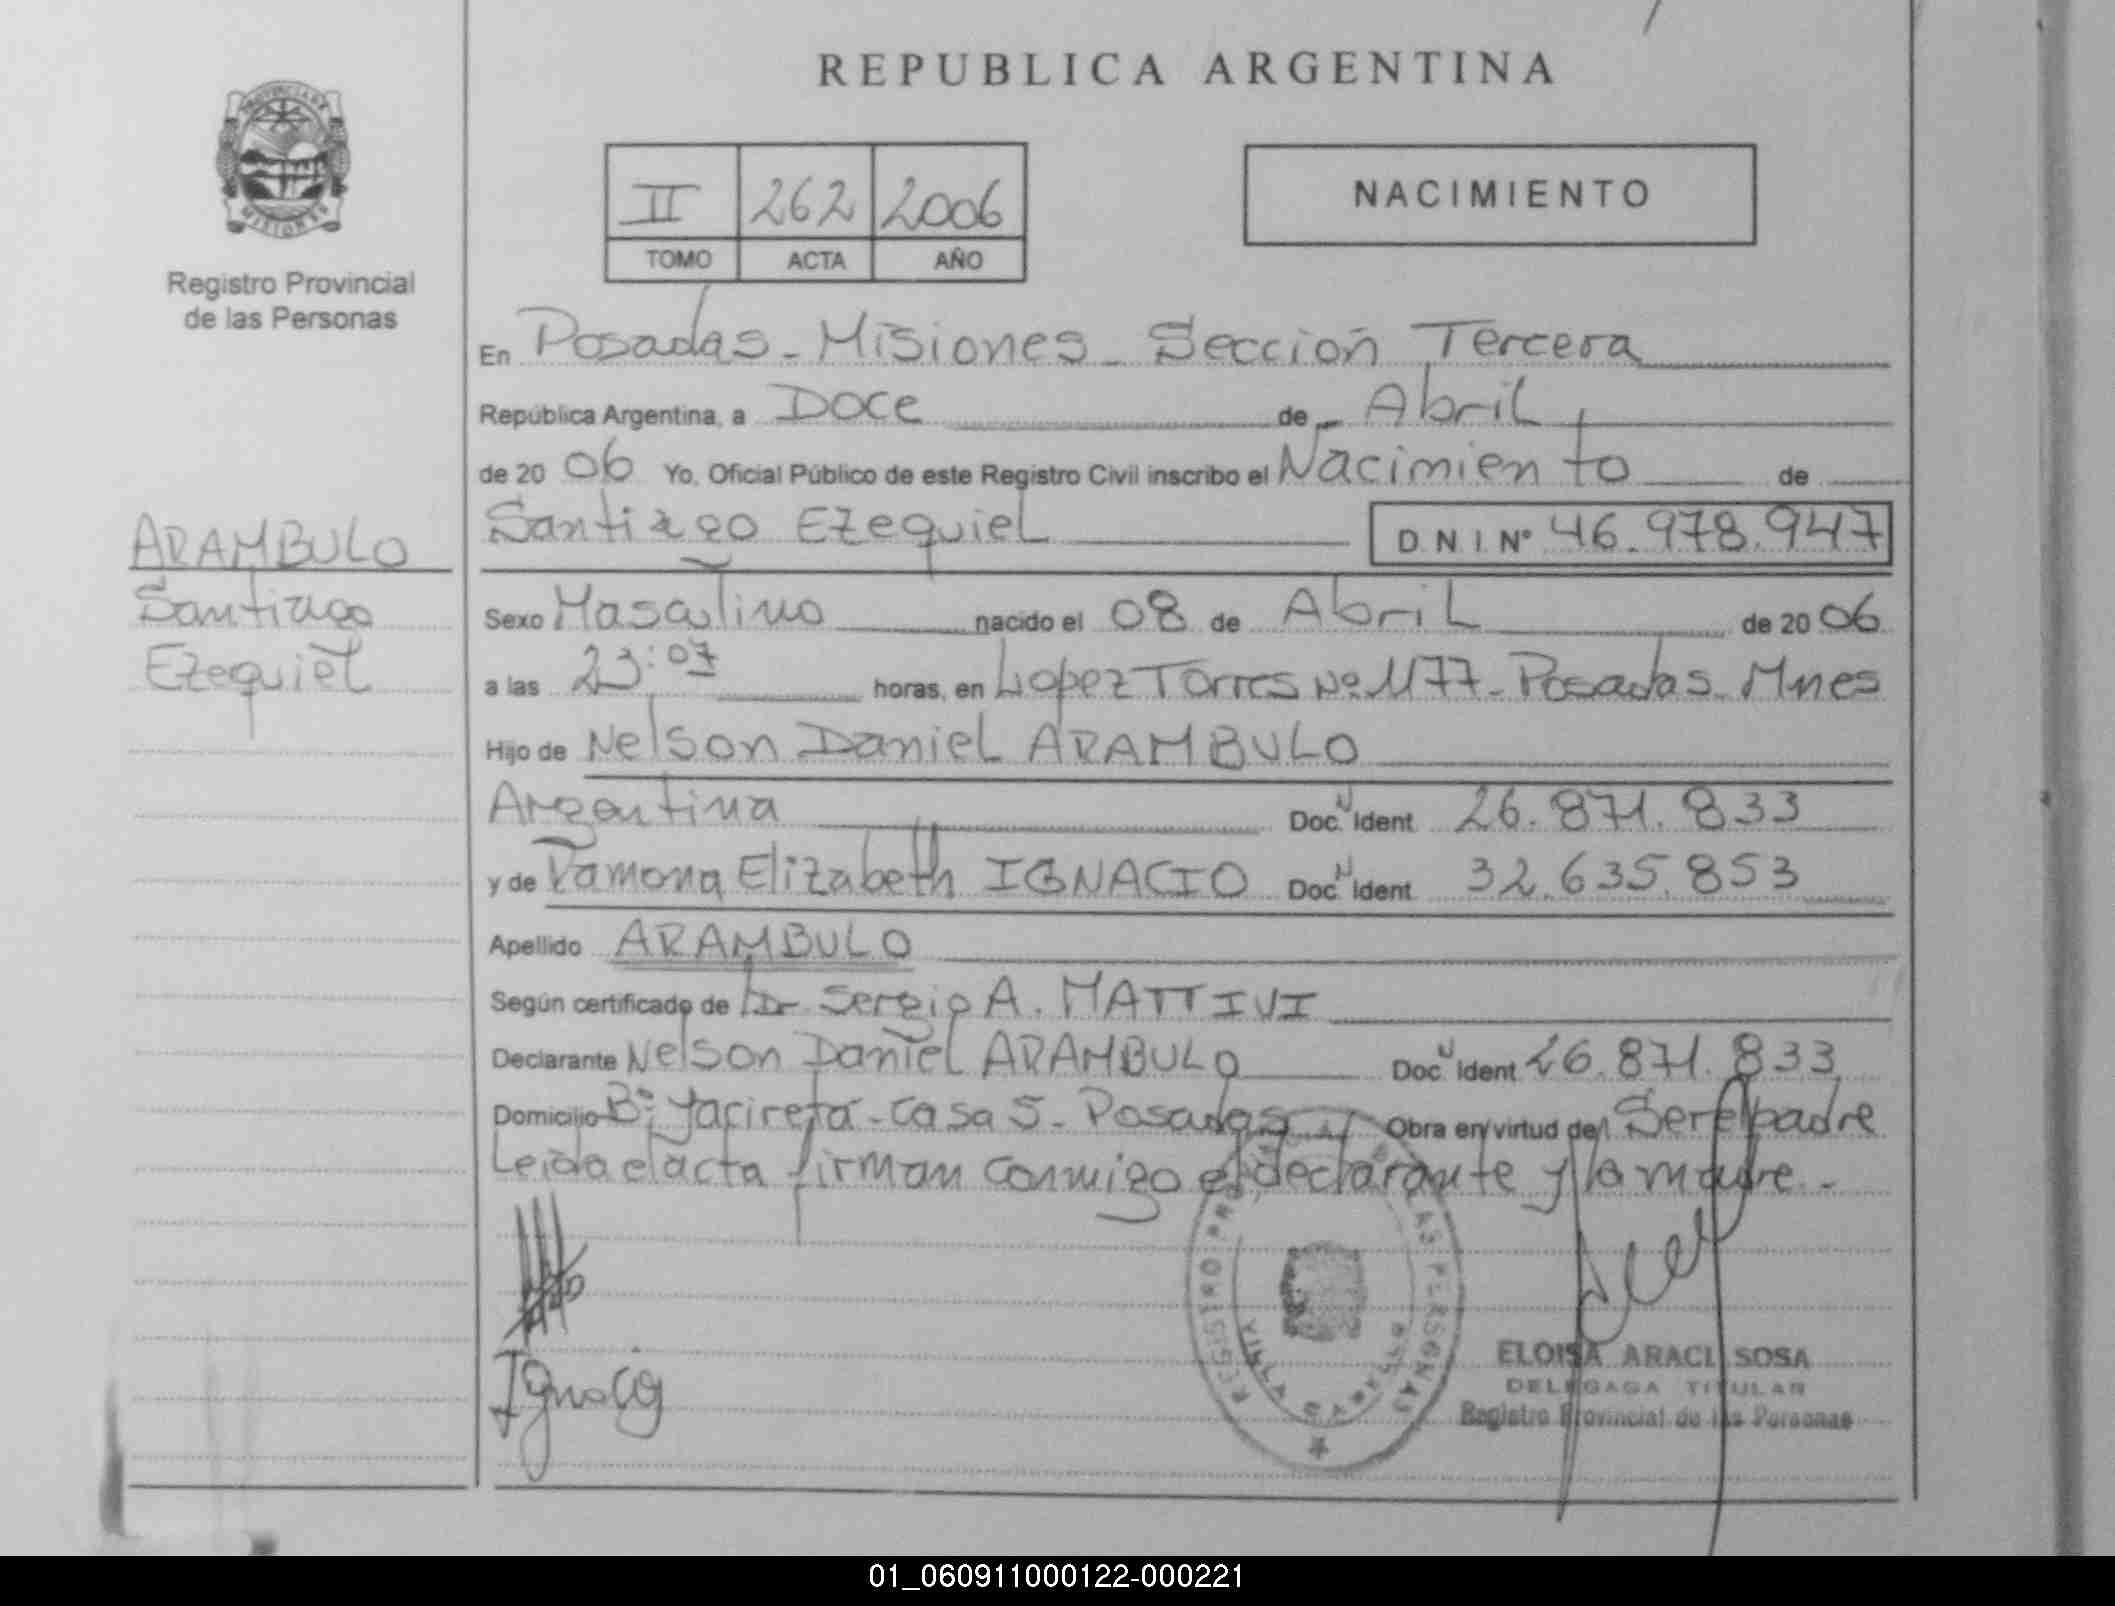 REPUBLICA ARGENTINA
PROVINCIA DE
MISIONES
Registro Provincial
de las Personas
II 262 2006
TOMO ACTA AÑO
NACIMIENTO
En Posadas - Misiones - Sección Tercera
República Argentina, a Doce de Abril
de 20 06 Yo, Oficial Público de este Registro Civil inscribo el Nacimiento de
Santiago Ezequiel D N I Nº 46.978.947
ARAMBULO
Santiago
Ezequiel
Sexo Masculino nacido el 08 de Abril de 20 06
a las 23:07 horas, en Lopez Torres Nº 1177 - Posadas - Mnes
Hijo de Nelson Daniel ARAMBULO
Argentina Doc. Ident 26.871.833
y de Ramona Elizabeth IGNACIO Doc. Ident 32.635.853
Apellido ARAMBULO
Según certificado de Dr Sergio A. MATTIVI
Declarante Nelson Daniel ARAMBULO Doc. Ident 26.871.833
Domicilio Bº Yacireta - Casa 5 - Posadas Obra en virtud de Ser el padre
Leida el acta firman conmigo el declarante y la madre.-
REGISTRO PROVINCIAL DE LAS PERSONAS
Ignacio
ELOISA ARACI SOSA
DELEGADA TITULAR
Registro Provincial de las Personas
01_060911000122-000221